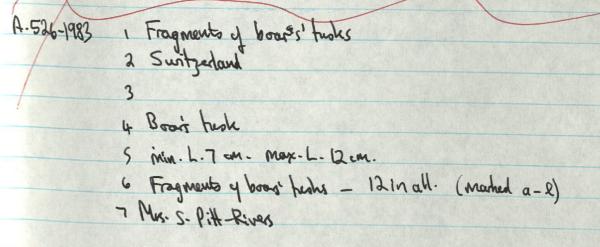 A.526-1983 1 Fragments of boars' tusks
2 Switzerland
3
4 Boar's tusk
5 min. L. 7 cm. max. L. 12 cm.
6 Fragments of boars' tusks – 12 in all. (marked a-l)
7 Mrs. S. Pitt-Rivers